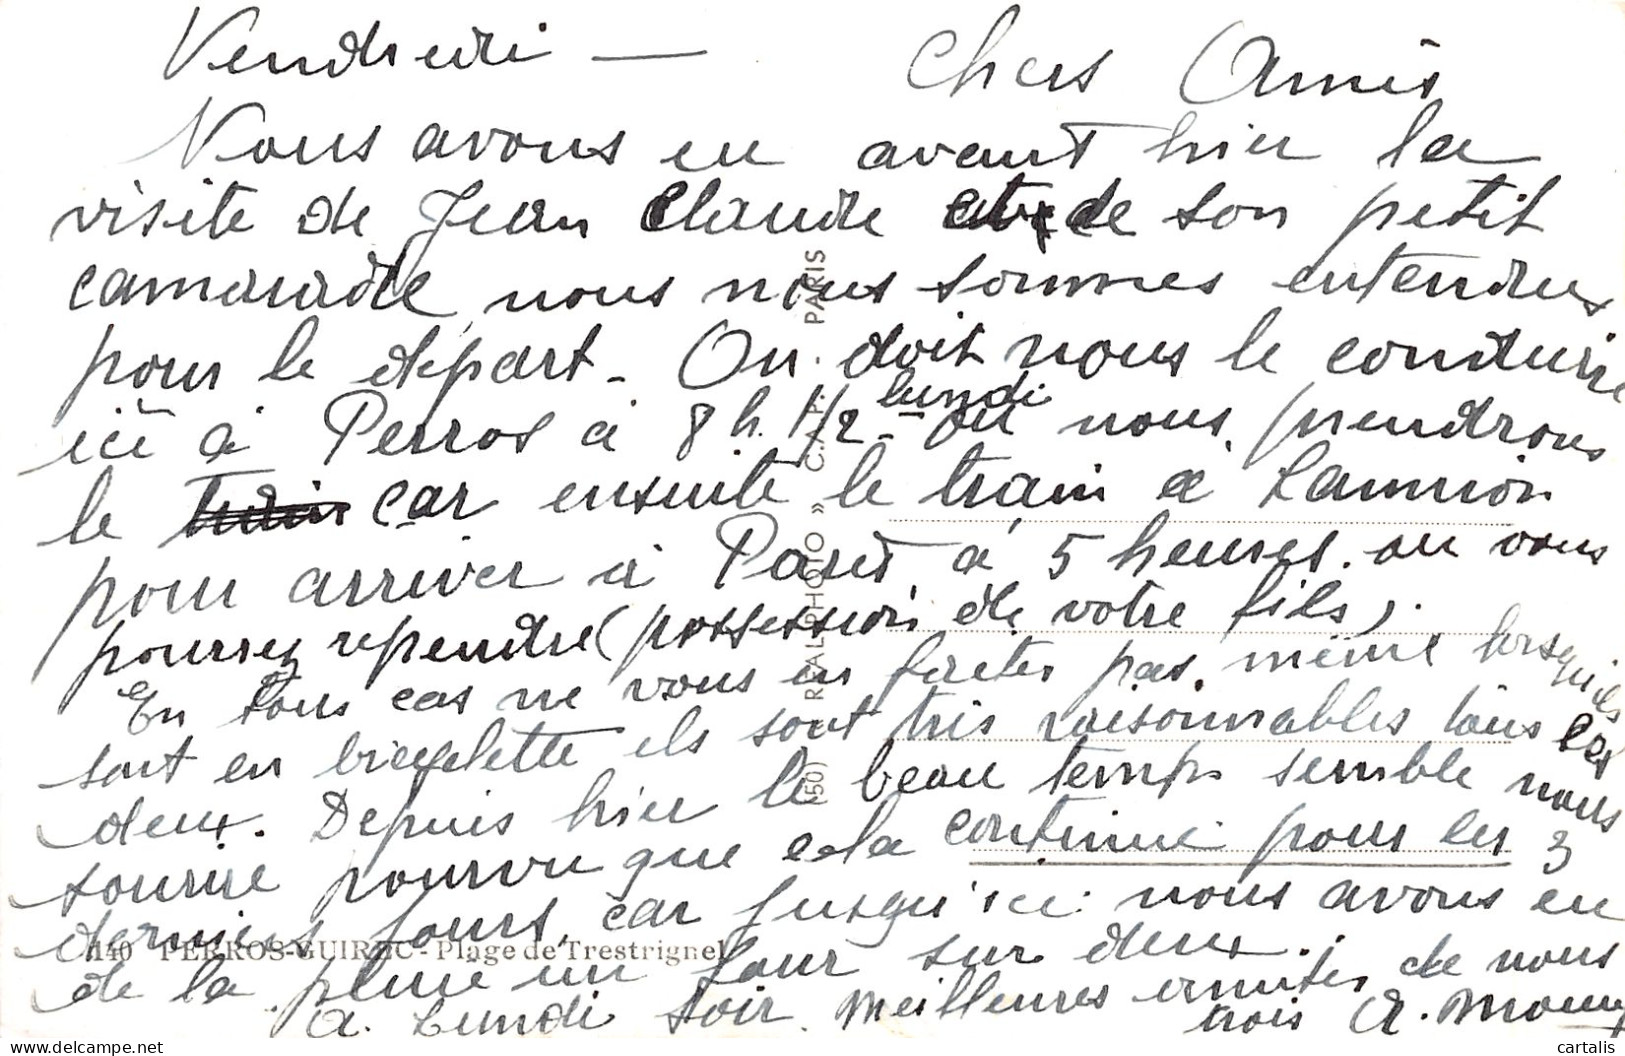 Vendredi — Chers Amis
Nous avons eu avant hier la
visite de Jean Claude et de son petit
camarade, nous nous sommes entendus
pour le départ - On doit nous le conduire
ici à Perros à 8 h. 1/2 - lundi où nous prendrons
le train car ensuite le train à Lannion
pour arriver à Paris à 5 heures. ou vous
pourrez reprendre (possession de votre fils).
En tous cas ne vous en faites pas, même lorsqu'ils
sont en bicyclette ils sont très raisonnables tous les
deux. Depuis hier le beau temps semble nous
sourire pourvu que cela continue pour les 3
derniers jours, car jusqu'ici nous avons eu
de la pluie un jour sur deux.
A Lundi soir. Meilleures amitiés de nous
trois A.
140 PERROS-GUIREC - Plage de Trestrignel
(50) « REAL-PHOTO » C. A. P. PARIS
cartalis